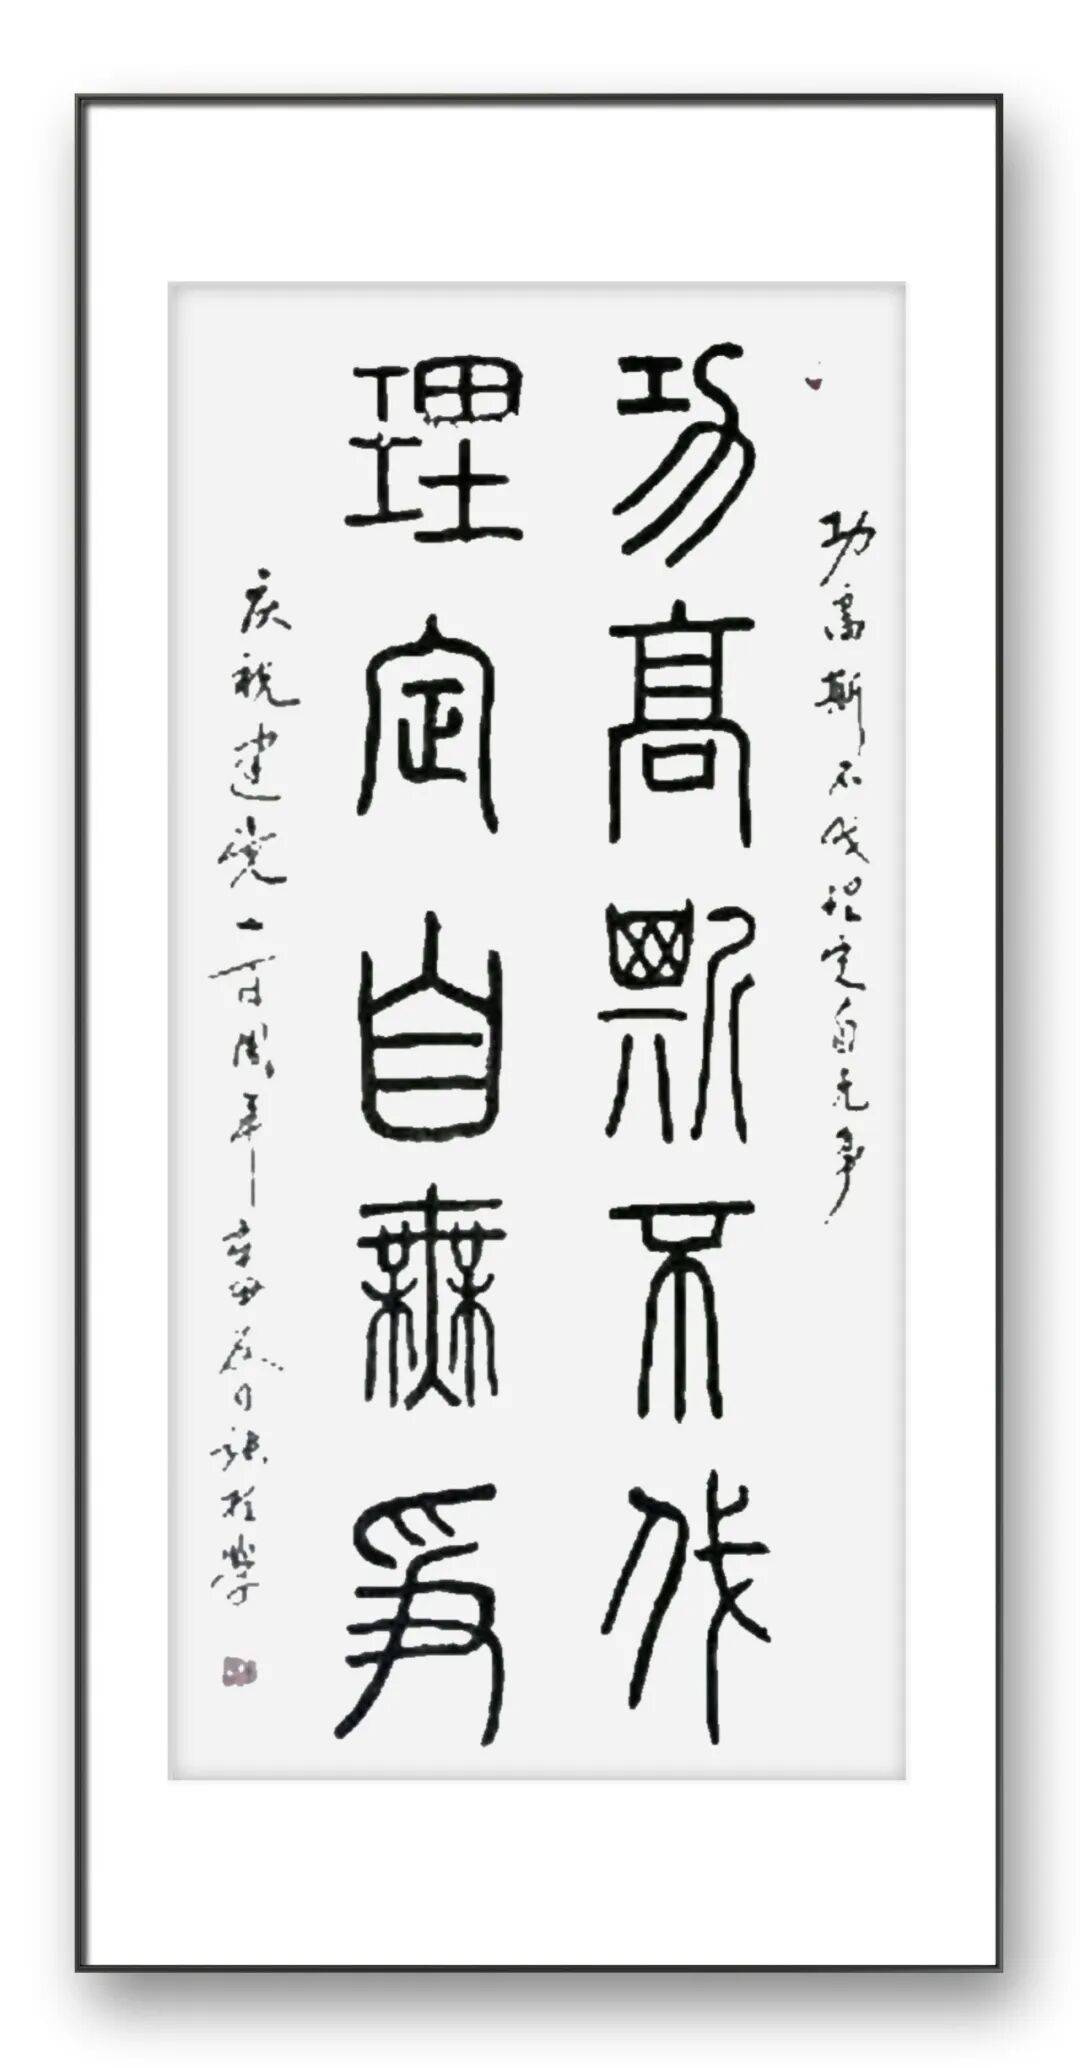 功高斯不伐理定自无争
功高斯不伐
理定自無爭
庆祝建党一百周年——辛丑月